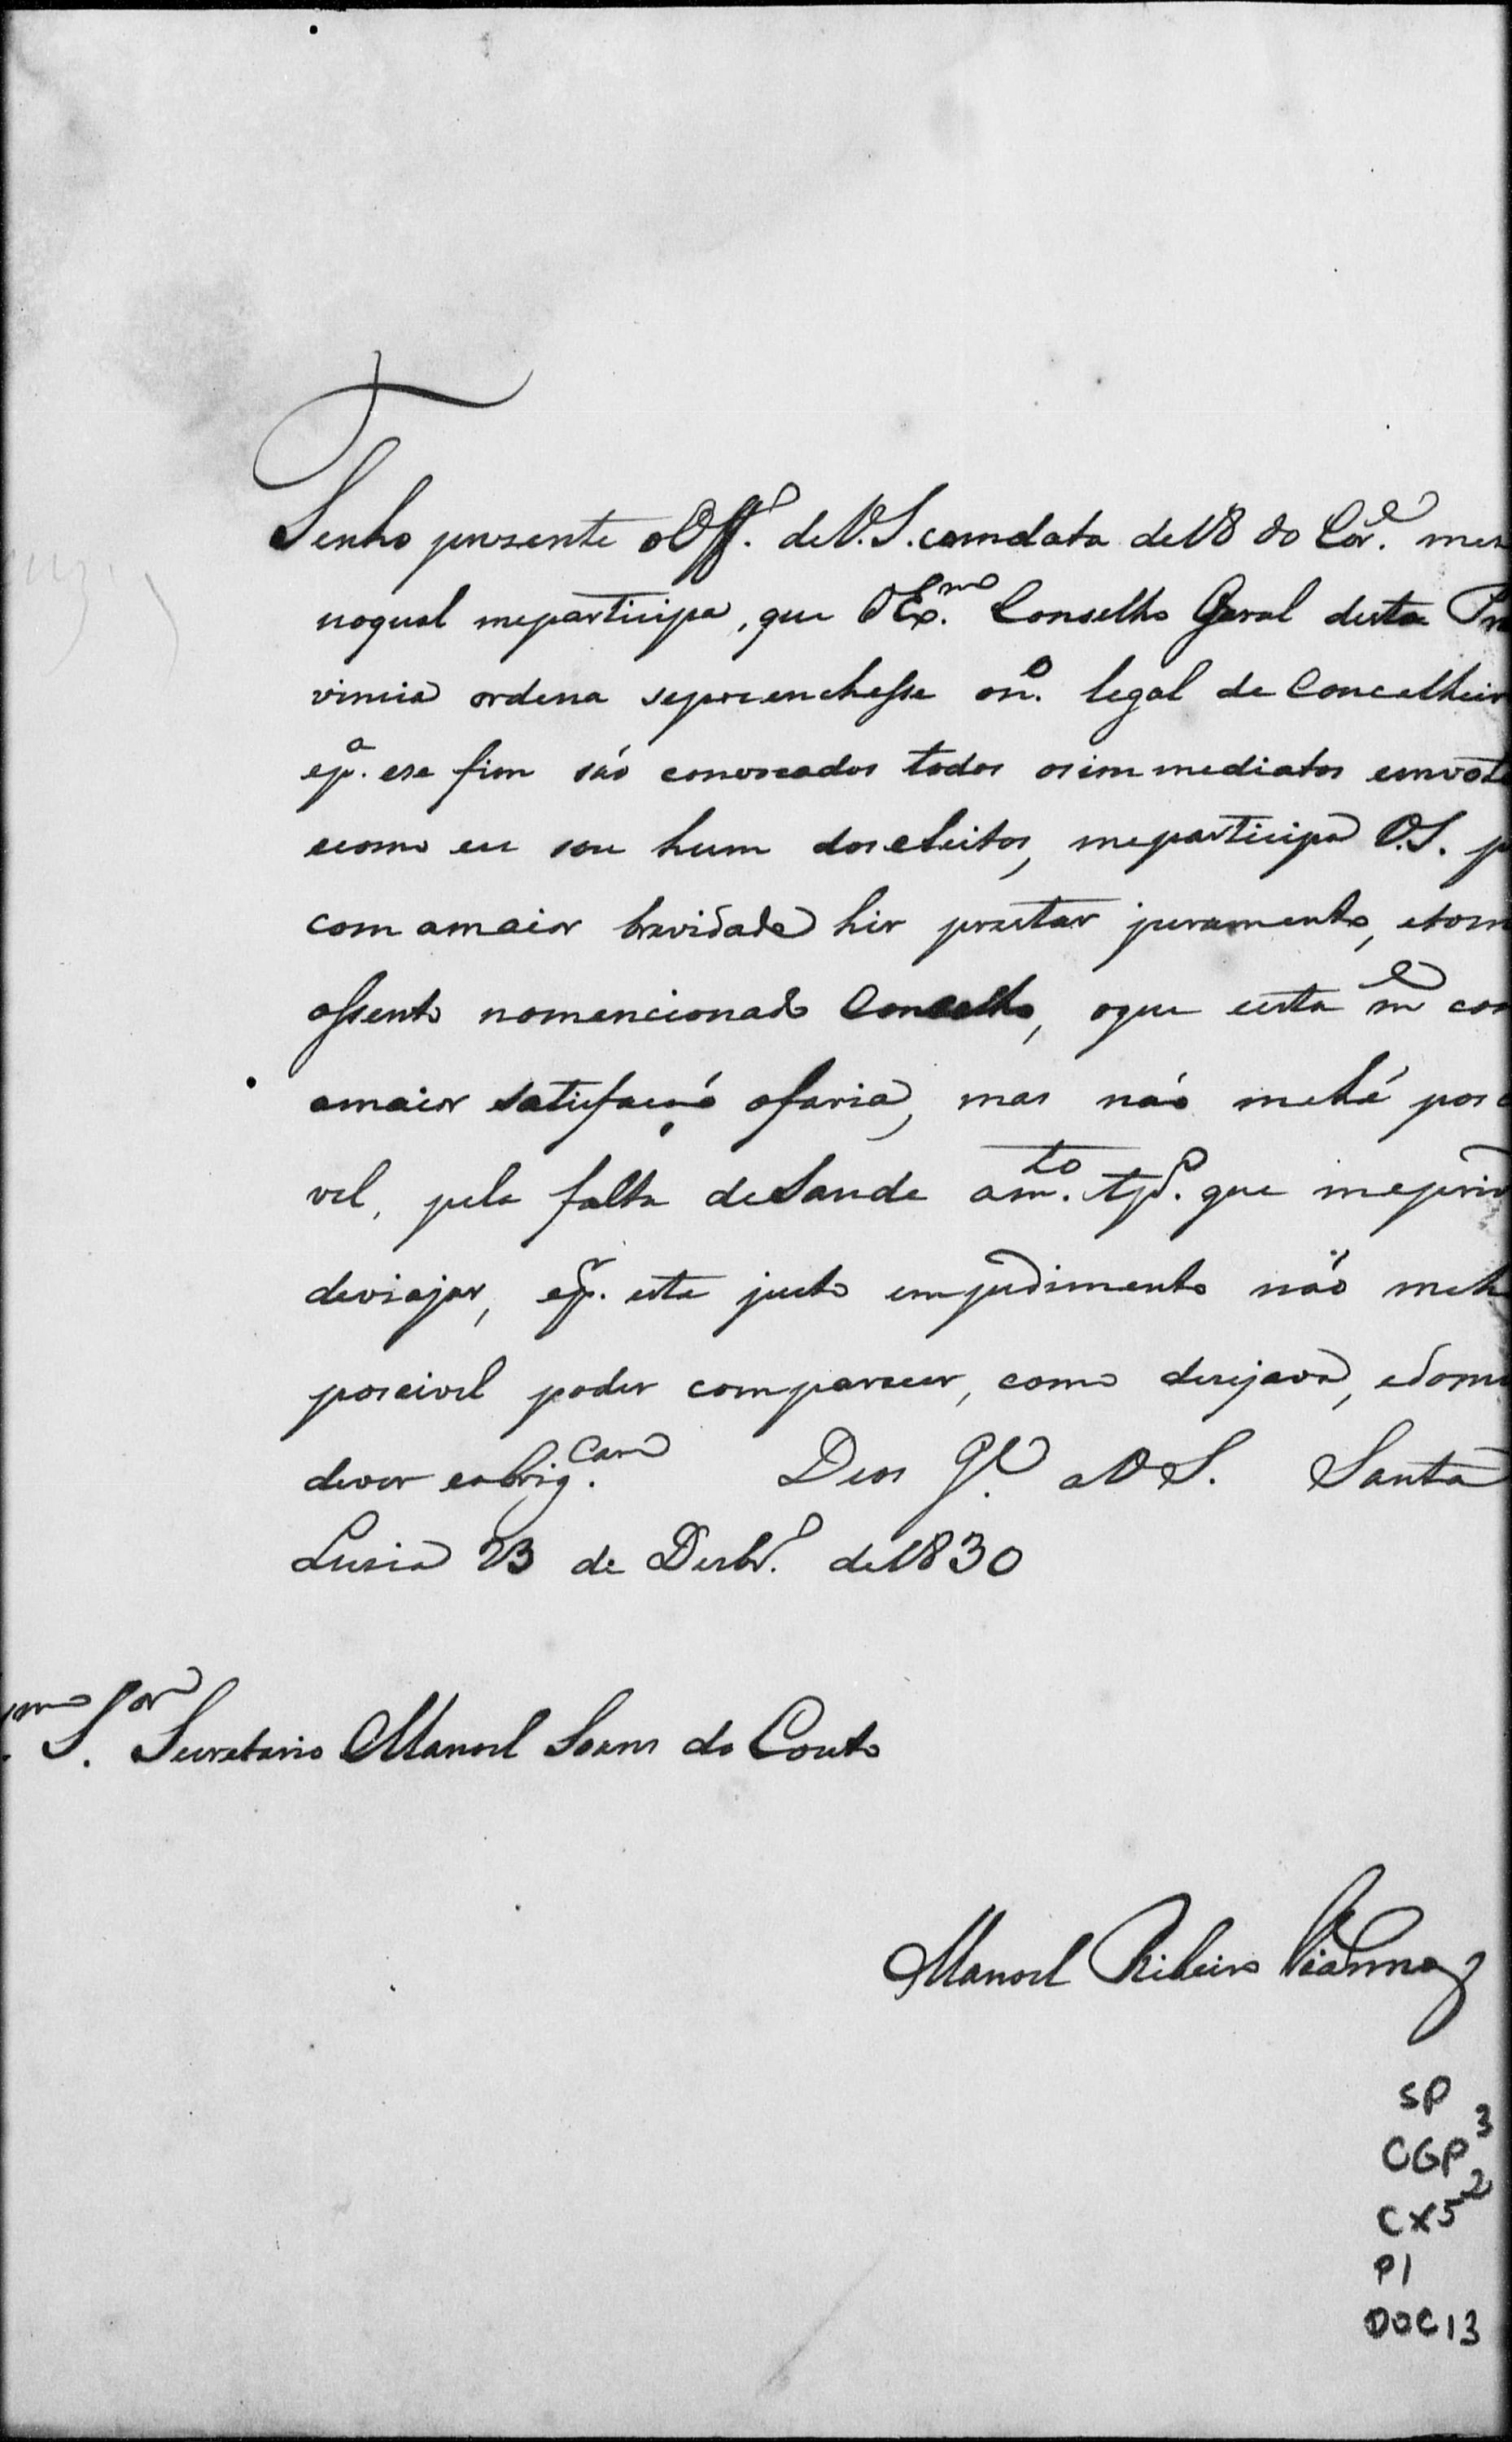 Tenho prezente o Off.º de V.S. com data de 18 do Cor.e mez
no qual me participa, que O Ex.mo Conselho Geral desta Pro
vincia ordena se preenchesse o n.º legal de Concelheir
e p.ª ese fim são convocados todos os immediatos em vot
e como eu sou hum dos eleitos, me participa V.S. p
com a maior brevidade hir prestar juramento, e tom
assento no mencionado Concelho, o que certa m.e com
a maior satisfação o faria, mas não me hé posc
vel, pela falta de Saude a m.to tp.º que me priv
de viajar, e p.r este justo empedimento não me h
poscivel poder comparecer, como desejava, e do meu
dever e obrig.cam Deos G.e a V.S. Santa
Luzia 23 de Dezbr.º de 1830
mo S.or Secretario Manoel Soares do Couto
Manoel Ribeiro Vianna
SP
CGP 3
CX5 2
P1
DOC 13